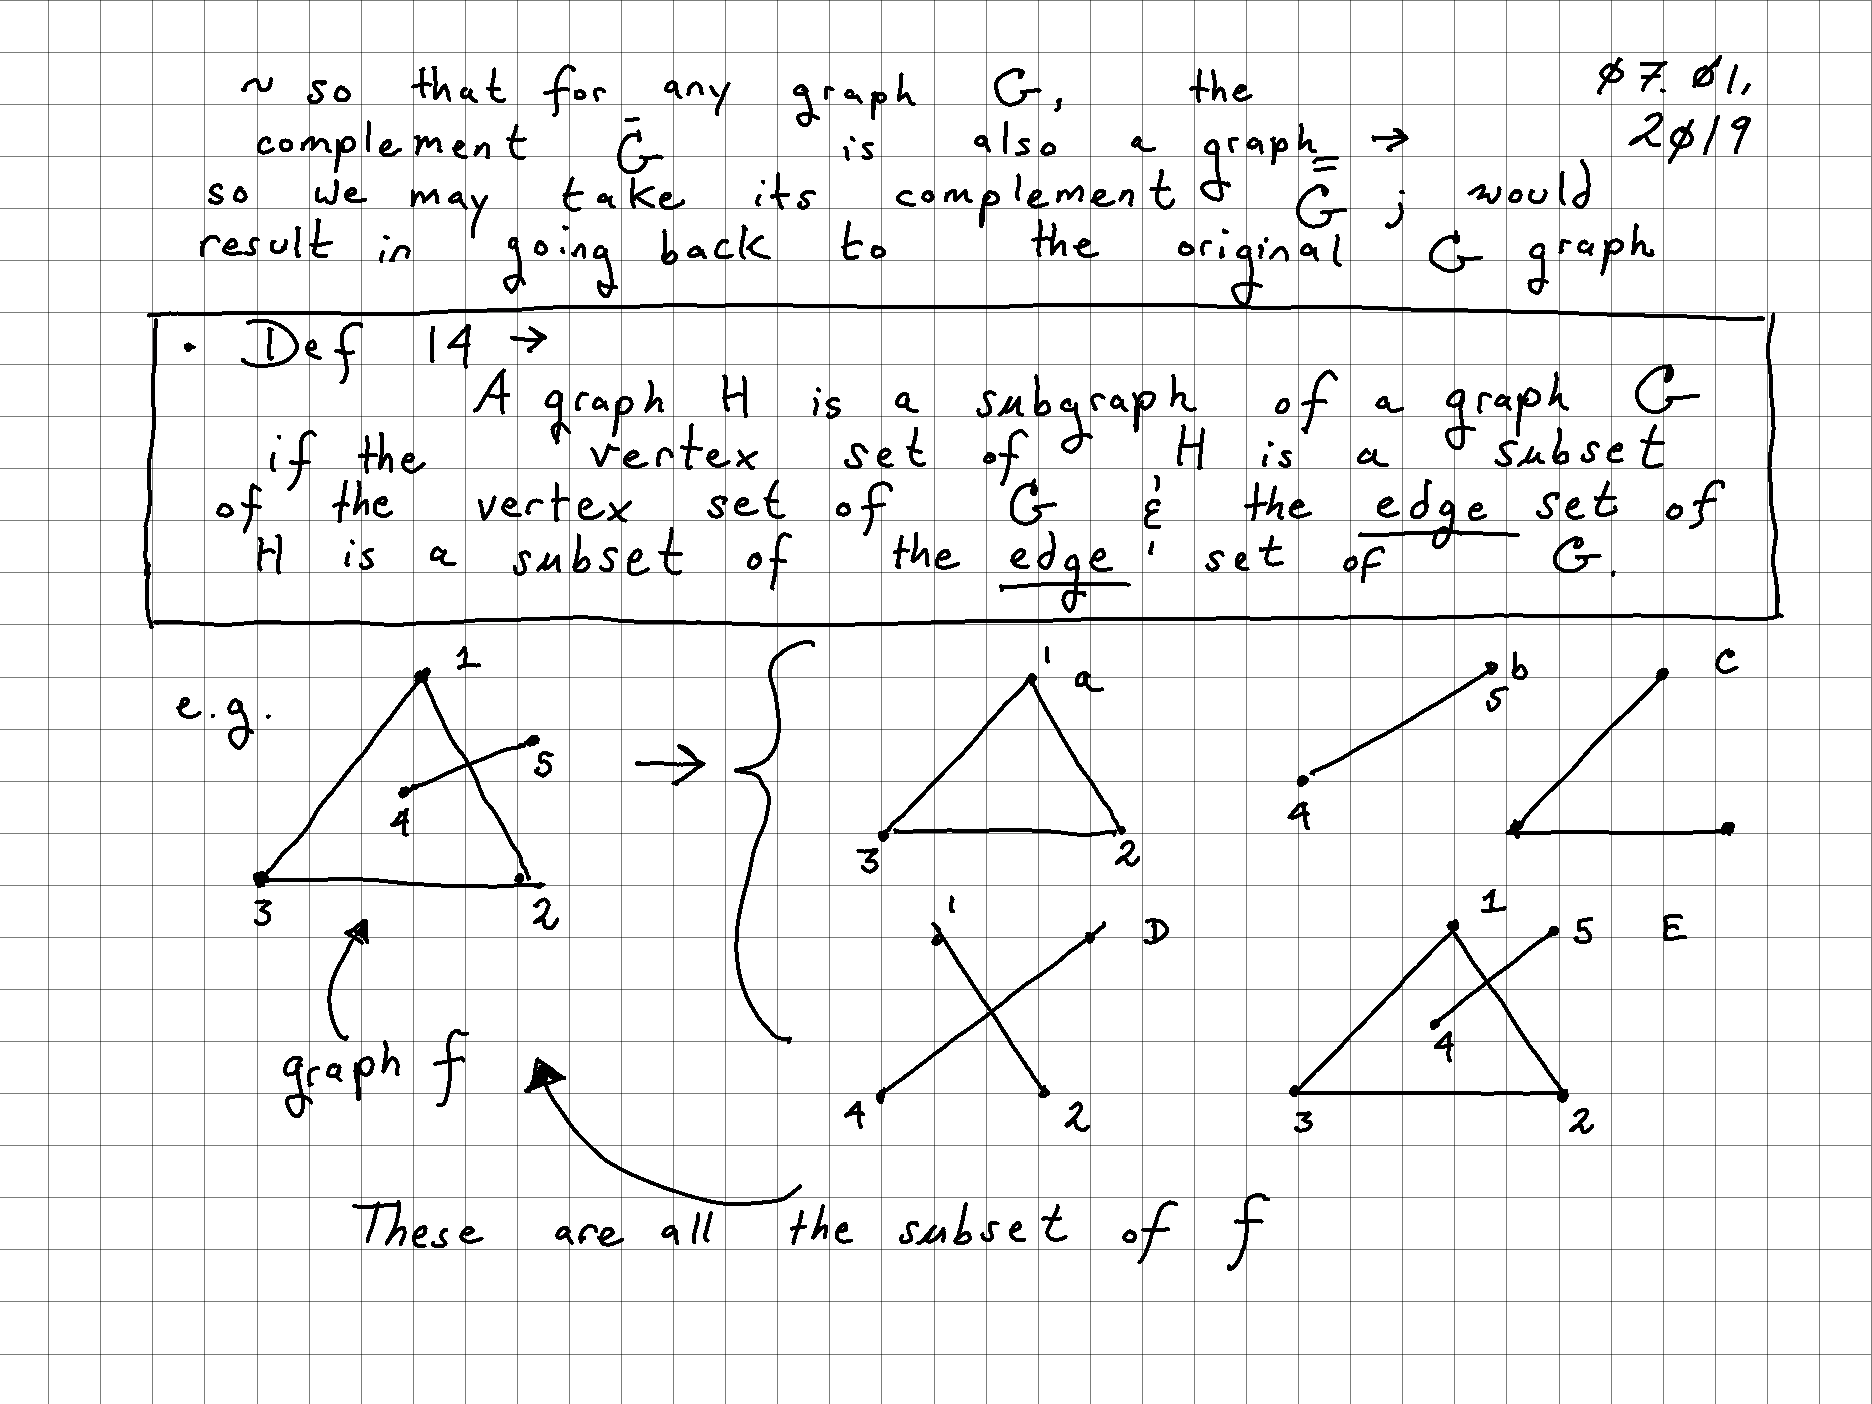 ~ so that for any graph G, the
ø7. ø1,
complement G̅ is also a graph →
2ø19
so we may take its complement G̿ ; would
result in going back to the original G graph
· Def 14 →
A graph H is a subgraph of a graph G
if the vertex set of H is a subset
of the vertex set of G & the edge set of
H is a subset of the edge set of G.
e.g.
1
5
4
3
2
→
1 a
3
2
b
5
4
C
1 D
4
2
1
5 E
4
3
2
graph f
These are all the subset of f